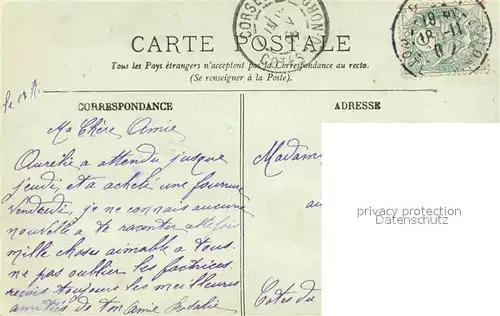 CARTE POSTALE
Tous les Pays étrangers n'acceptent pas la Correspondance au recto.
(Se renseigner à la Poste).
CORRESPONDANCE
ADRESSE
Ma Chère Amie
Aurélie a attendu jusque
jeudi, et a acheté une fournure
Vendredi, je ne connais aucune
nouvelle a te raconter cette fois
mille choses aimable a tous.
ne pas oublier les factrices
reçois toujours les meilleures
amitiés de ton amie Rosalie
Madame
au
Cotes du
privacy protection
watermark